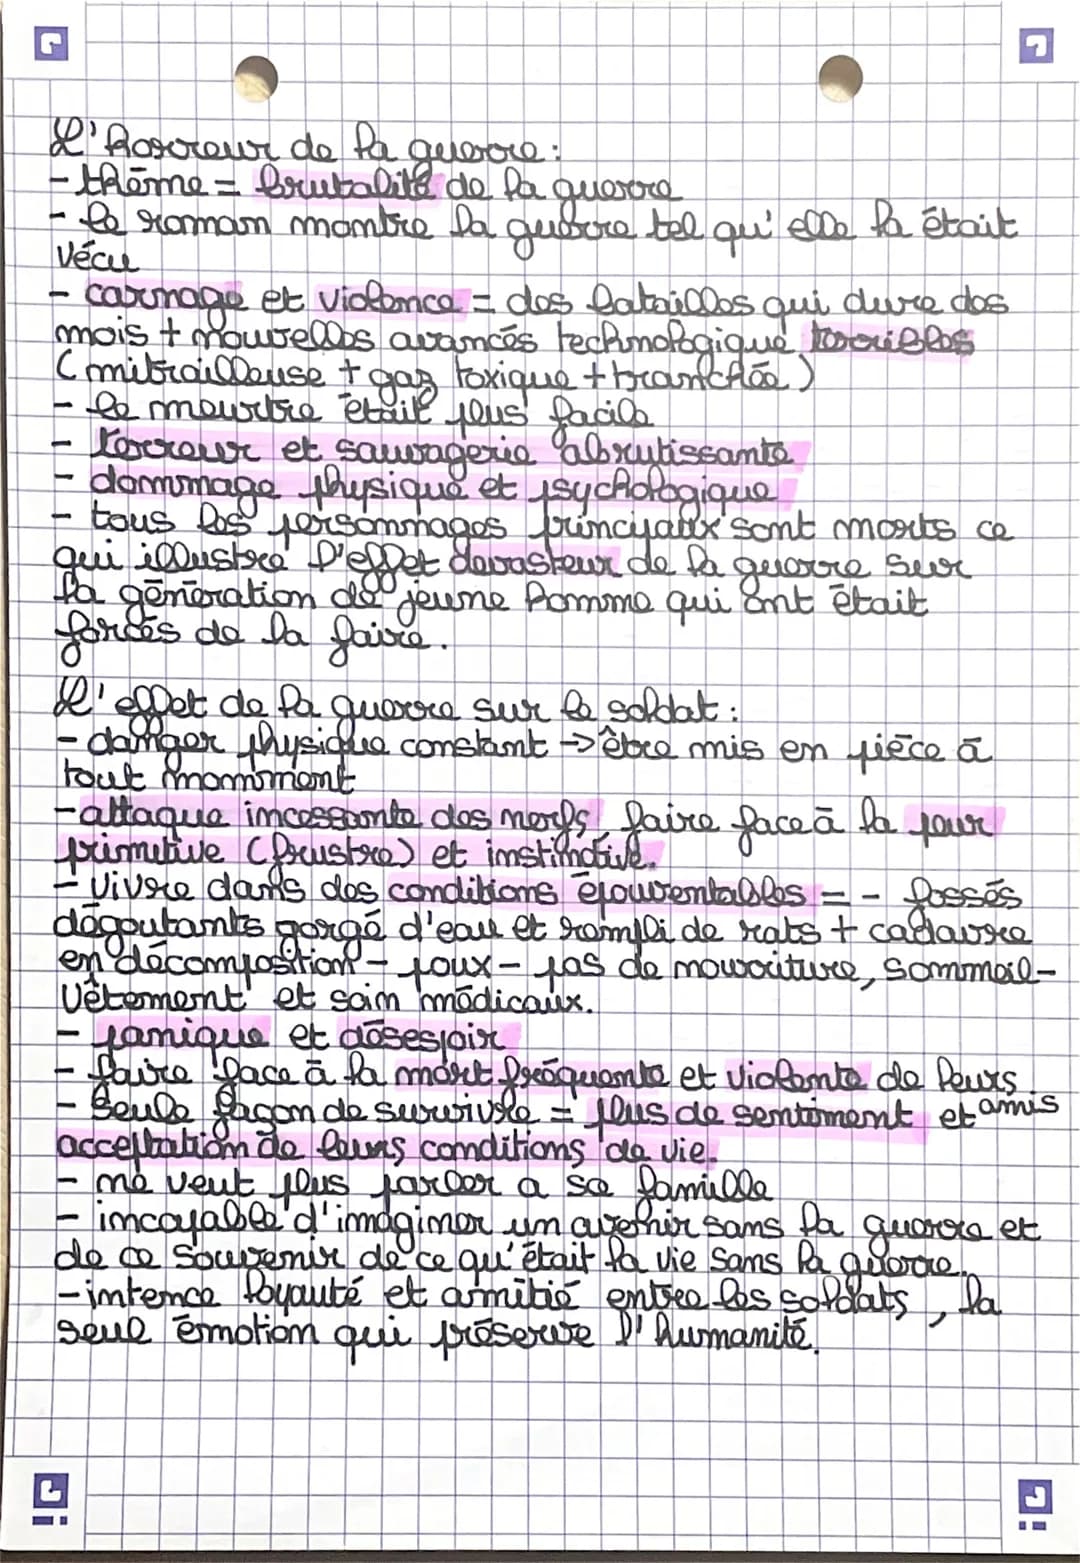 L'horreur de la guerre :
- thème = brutalité de la guerre
- le roman montre la guerre tel qu'elle la était
vécu
- carnage et violence = des batailles qui dure des
mois + nouvelles avancés technologique terribles
(mitrailleuse + gaz toxique + tranchée)
- le meurtre était plus facile
- terreur et sauvagerie abrutissante
- dommage physique et psychologique
- tous les personnages principaux sont morts ce
qui illustre l'effet devasteur de la guerre sur
la génération de jeune homme qui ont était
forcés de la faire.
L'effet de la guerre sur le soldat :
- danger physique constant → être mis en pièce à
tout momment
- attaque incessante des nerfs, faire face à la peur
primitive (frustre) et instinctive.
- vivre dans des conditions épouventables = - fossés
dégoutants gorgé d'eau et rempli de rats + cadavre
en décomposition - poux - pas de nourriture, sommeil -
vêtement et soin médicaux.
- panique et désespoir
- faire face à la mort fréquente et violente de leurs
amis
- Seule façon de survivre = plus de sentiment et
acceptation de leurs conditions de vie.
- ne veut plus parler a sa famille
- incapable d'imaginer un avenir sans la guerre et
de ce souvenir de ce qu'était la vie sans la guerre.
- intence loyauté et amitié entre les soldats, la
seul émotion qui préserve l'humanité.